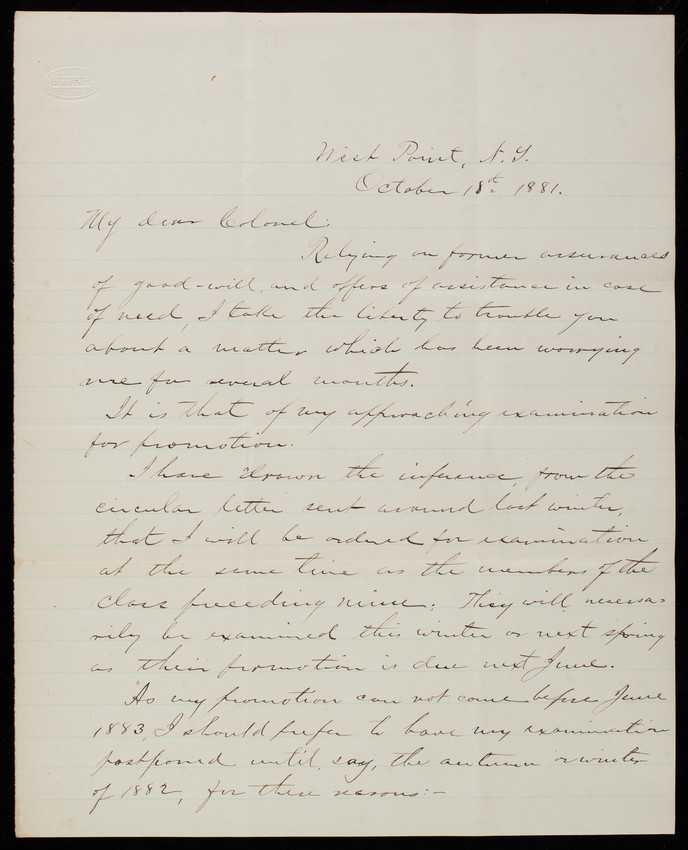 West Point, N.Y.
October 18th. 1881.
My dear Colonel:
Relying on former assurances
of good-will, and offers of assistance in case
of need, I take the liberty to trouble you
about a matter which has been worrying
me for several months.
It is that of my approaching examination
for promotion.
I have drawn the inference, from the
circular letter sent around last winter,
that I will be ordered for examination
at the same time as the members of the
class preceeding mine. They will necessa-
rily be examined this winter or next spring
as their promotion is due next June.
As my promotion can not come before June
1883, I should prefer to have my examination
postponed until, say, the autumn or winter
of 1882, for these reasons:-